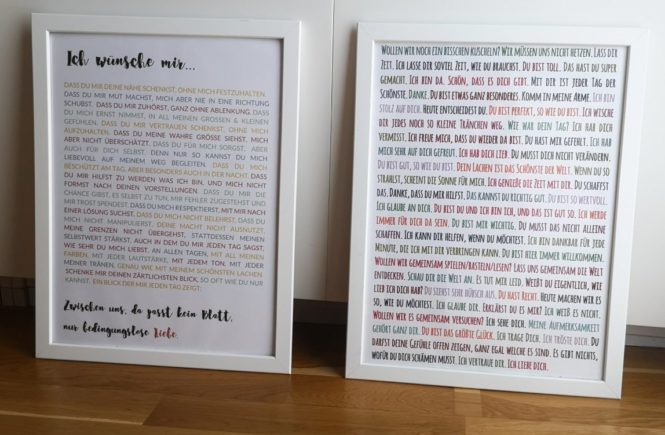 Ich wünsche mir...
DASS DU MIR DEINE NÄHE SCHENKST, OHNE MICH FESTZUHALTEN.
DASS DU MIR MUT MACHST, MICH ABER NIE IN EINE RICHTUNG
SCHUBST. DASS DU MIR ZUHÖRST, GANZ OHNE ABLENKUNG. DASS
DU MICH ERNST NIMMST, IN ALL MEINEN GROSSEN & KLEINEN
GEFÜHLEN. DASS DU MIR VERTRAUEN SCHENKST, OHNE MICH
AUFZUHALTEN. DASS DU MEINE WAHRE GRÖSSE SIEHST, MICH
ABER NICHT ÜBERSCHÄTZT. DASS DU FÜR MICH SORGST, ABER
AUCH FÜR DICH SELBST, DENN NUR SO KANNST DU MICH
LIEBEVOLL AUF MEINEM WEG BEGLEITEN. DASS DU MICH
BESCHÜTZT AM TAG, ABER BESONDERS AUCH IN DER NACHT. DASS
DU MIR HILFST ZU WERDEN WAS ICH BIN, UND MICH NICHT
FORMST NACH DEINEN VORSTELLUNGEN. DASS DU MIR DIE
CHANCE GIBST, ES SELBST ZU TUN, MIR FEHLER ZUGESTEHST UND
MIR TROST SPENDEST. DASS DU MICH RESPEKTIERST, MIT MIR NACH
EINER LÖSUNG SUCHST. DASS DU MICH NICHT BELEHRST. DASS DU
MICH NICHT MANIPULIERST, DEINE MACHT NICHT AUSNUTZT,
MEINE GRENZEN NICHT ÜBERGEHST, STATTDESSEN MEINEN
SELBSTWERT STÄRKST, AUCH IN DEM DU MIR JEDEN TAG SAGST,
WIE SEHR DU MICH LIEBST. AN ALLEN TAGEN, MIT ALL MEINEN
FARBEN, MIT JEDER LAUTSTÄRKE, MIT JEDEM TON, MIT JEDER
MEINER TRÄNEN, GENAU WIE MIT MEINEM SCHÖNSTEN LACHEN.
SCHENKE MIR DEINEN ZÄRTLICHSTEN BLICK, SO OFT WIE DU NUR
KANNST. EIN BLICK DER MIR JEDEN TAG ZEIGT:
Zwischen uns, da passt kein Blatt,
nur bedingungslose Liebe.
WOLLEN WIR NOCH EIN BISSCHEN KUSCHELN? WIR MÜSSEN UNS NICHT HETZEN. LASS DIR
ZEIT. ICH LASSE DIR SOVIEL ZEIT, WIE DU BRAUCHST. DU BIST TOLL. DAS HAST DU SUPER
GEMACHT. ICH BIN DA. SCHÖN, DASS ES DICH GIBT. MIT DIR IST JEDER TAG DER
SCHÖNSTE. DANKE. DU BIST ETWAS GANZ BESONDERES. KOMM IN MEINE ARME. ICH BIN
STOLZ AUF DICH. HEUTE ENTSCHEIDEST DU. DU BIST PERFEKT, SO WIE DU BIST. ICH WISCHE
DIR JEDES NOCH SO KLEINE TRÄNCHEN WEG. WIE WAR DEIN TAG? ICH HAB DICH
VERMISST. ICH FREUE MICH, DASS DU WIEDER DA BIST. DU HAST MIR GEFEHLT. ICH HAB
MICH SEHR AUF DICH GEFREUT. ICH HAB DICH LIEB. DU MUSST DICH NICHT VERÄNDERN.
DU BIST GUT, SO WIE DU BIST. DEIN LACHEN IST DAS SCHÖNSTE DER WELT. WENN DU SO
STRAHLST, SCHEINT DIE SONNE FÜR MICH. ICH GENIEẞE DIE ZEIT MIT DIR. DU SCHAFFST
DAS. DANKE, DASS DU MIR HILFST. DAS KANNST DU RICHTIG GUT. DU BIST SO WERTVOLL.
ICH GLAUBE AN DICH. DU BIST DU UND ICH BIN ICH, UND DAS IST GUT SO. ICH WERDE
IMMER FÜR DICH DA SEIN. DU BIST MIR WICHTIG. DU MUSST DAS NICHT ALLEINE
SCHAFFEN. ICH KANN DIR HELFEN, WENN DU MÖCHTEST. ICH BIN DANKBAR FÜR JEDE
MINUTE, DIE ICH MIT DIR VERBRINGEN KANN. DU BIST HIER IMMER WILLKOMMEN.
WOLLEN WIR GEMEINSAM SPIELEN/BASTELN/LESEN? LASS UNS GEMEINSAM DIE WELT
ENTDECKEN. SCHAU DIR DIE WELT AN. ES TUT MIR LEID. WEIẞT DU EIGENTLICH, WIE
LIEB ICH DICH HAB? DU SIEHST SEHR HÜBSCH AUS. DU HAST RECHT. HEUTE MACHEN WIR ES
SO, WIE DU MÖCHTEST. ICH GLAUBE DIR. ERKLÄRST DU ES MIR? ICH WEIẞ ES NICHT.
WOLLEN WIR ES GEMEINSAM VERSUCHEN? ICH SEHE DICH. MEINE AUFMERKSAMKEIT
GEHÖRT GANZ DIR. DU BIST DAS GRÖẞTE GLÜCK. ICH TRAGE DICH. ICH TRÖSTE DICH. DU
DARFST DEINE GEFÜHLE OFFEN ZEIGEN, GANZ EGAL WELCHE ES SIND. ES GIBT NICHTS,
WOFÜR DU DICH SCHÄMEN MUSST. ICH VERTRAUE DIR. ICH LIEBE DICH.